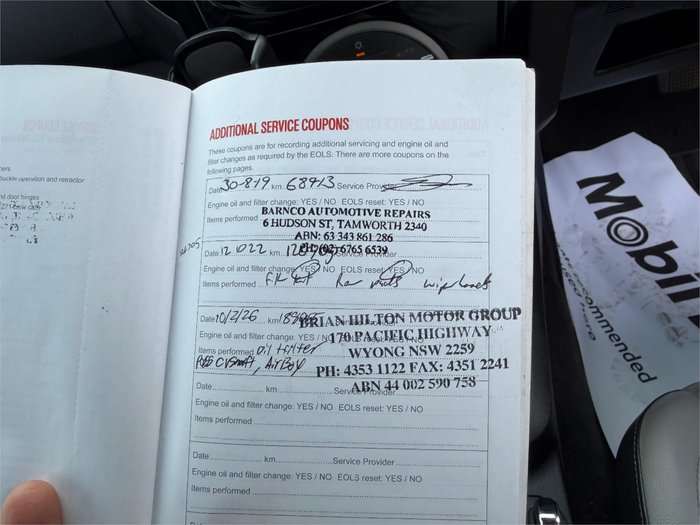 ADDITIONAL SERVICE COUPONS
These coupons are for recording additional servicing and engine oil and
filter changes as required by the EOLS. There are more coupons on the
following pages.
Date 30-8-19 km 68913 Service Provider
Engine oil and filter change: YES / NO EOLS reset: YES / NO
Items performed
BARNCO AUTOMOTIVE REPAIRS
6 HUDSON ST, TAMWORTH 2340
ABN: 63 343 861 286
PH: (02) 6765 6539
Date 12 10 22 km Service Provider
Engine oil and filter change: YES / NO EOLS reset: YES / NO
Items performed
Date 10/2/26 km Service Provider
Engine oil and filter change: YES / NO EOLS reset: YES / NO
Items performed Oil + filter
BRIAN HILTON MOTOR GROUP
170 PACIFIC HIGHWAY
WYONG NSW 2259
PH: 4353 1122 FAX: 4351 2241
ABN 44 002 590 758
Date km Service Provider
Engine oil and filter change: YES / NO EOLS reset: YES / NO
Items performed
Date km Service Provider
Engine oil and filter change: YES / NO EOLS reset: YES / NO
Items performed
buckle operation and retractor
door hinges
AUTO
Mobil
recommended
used here